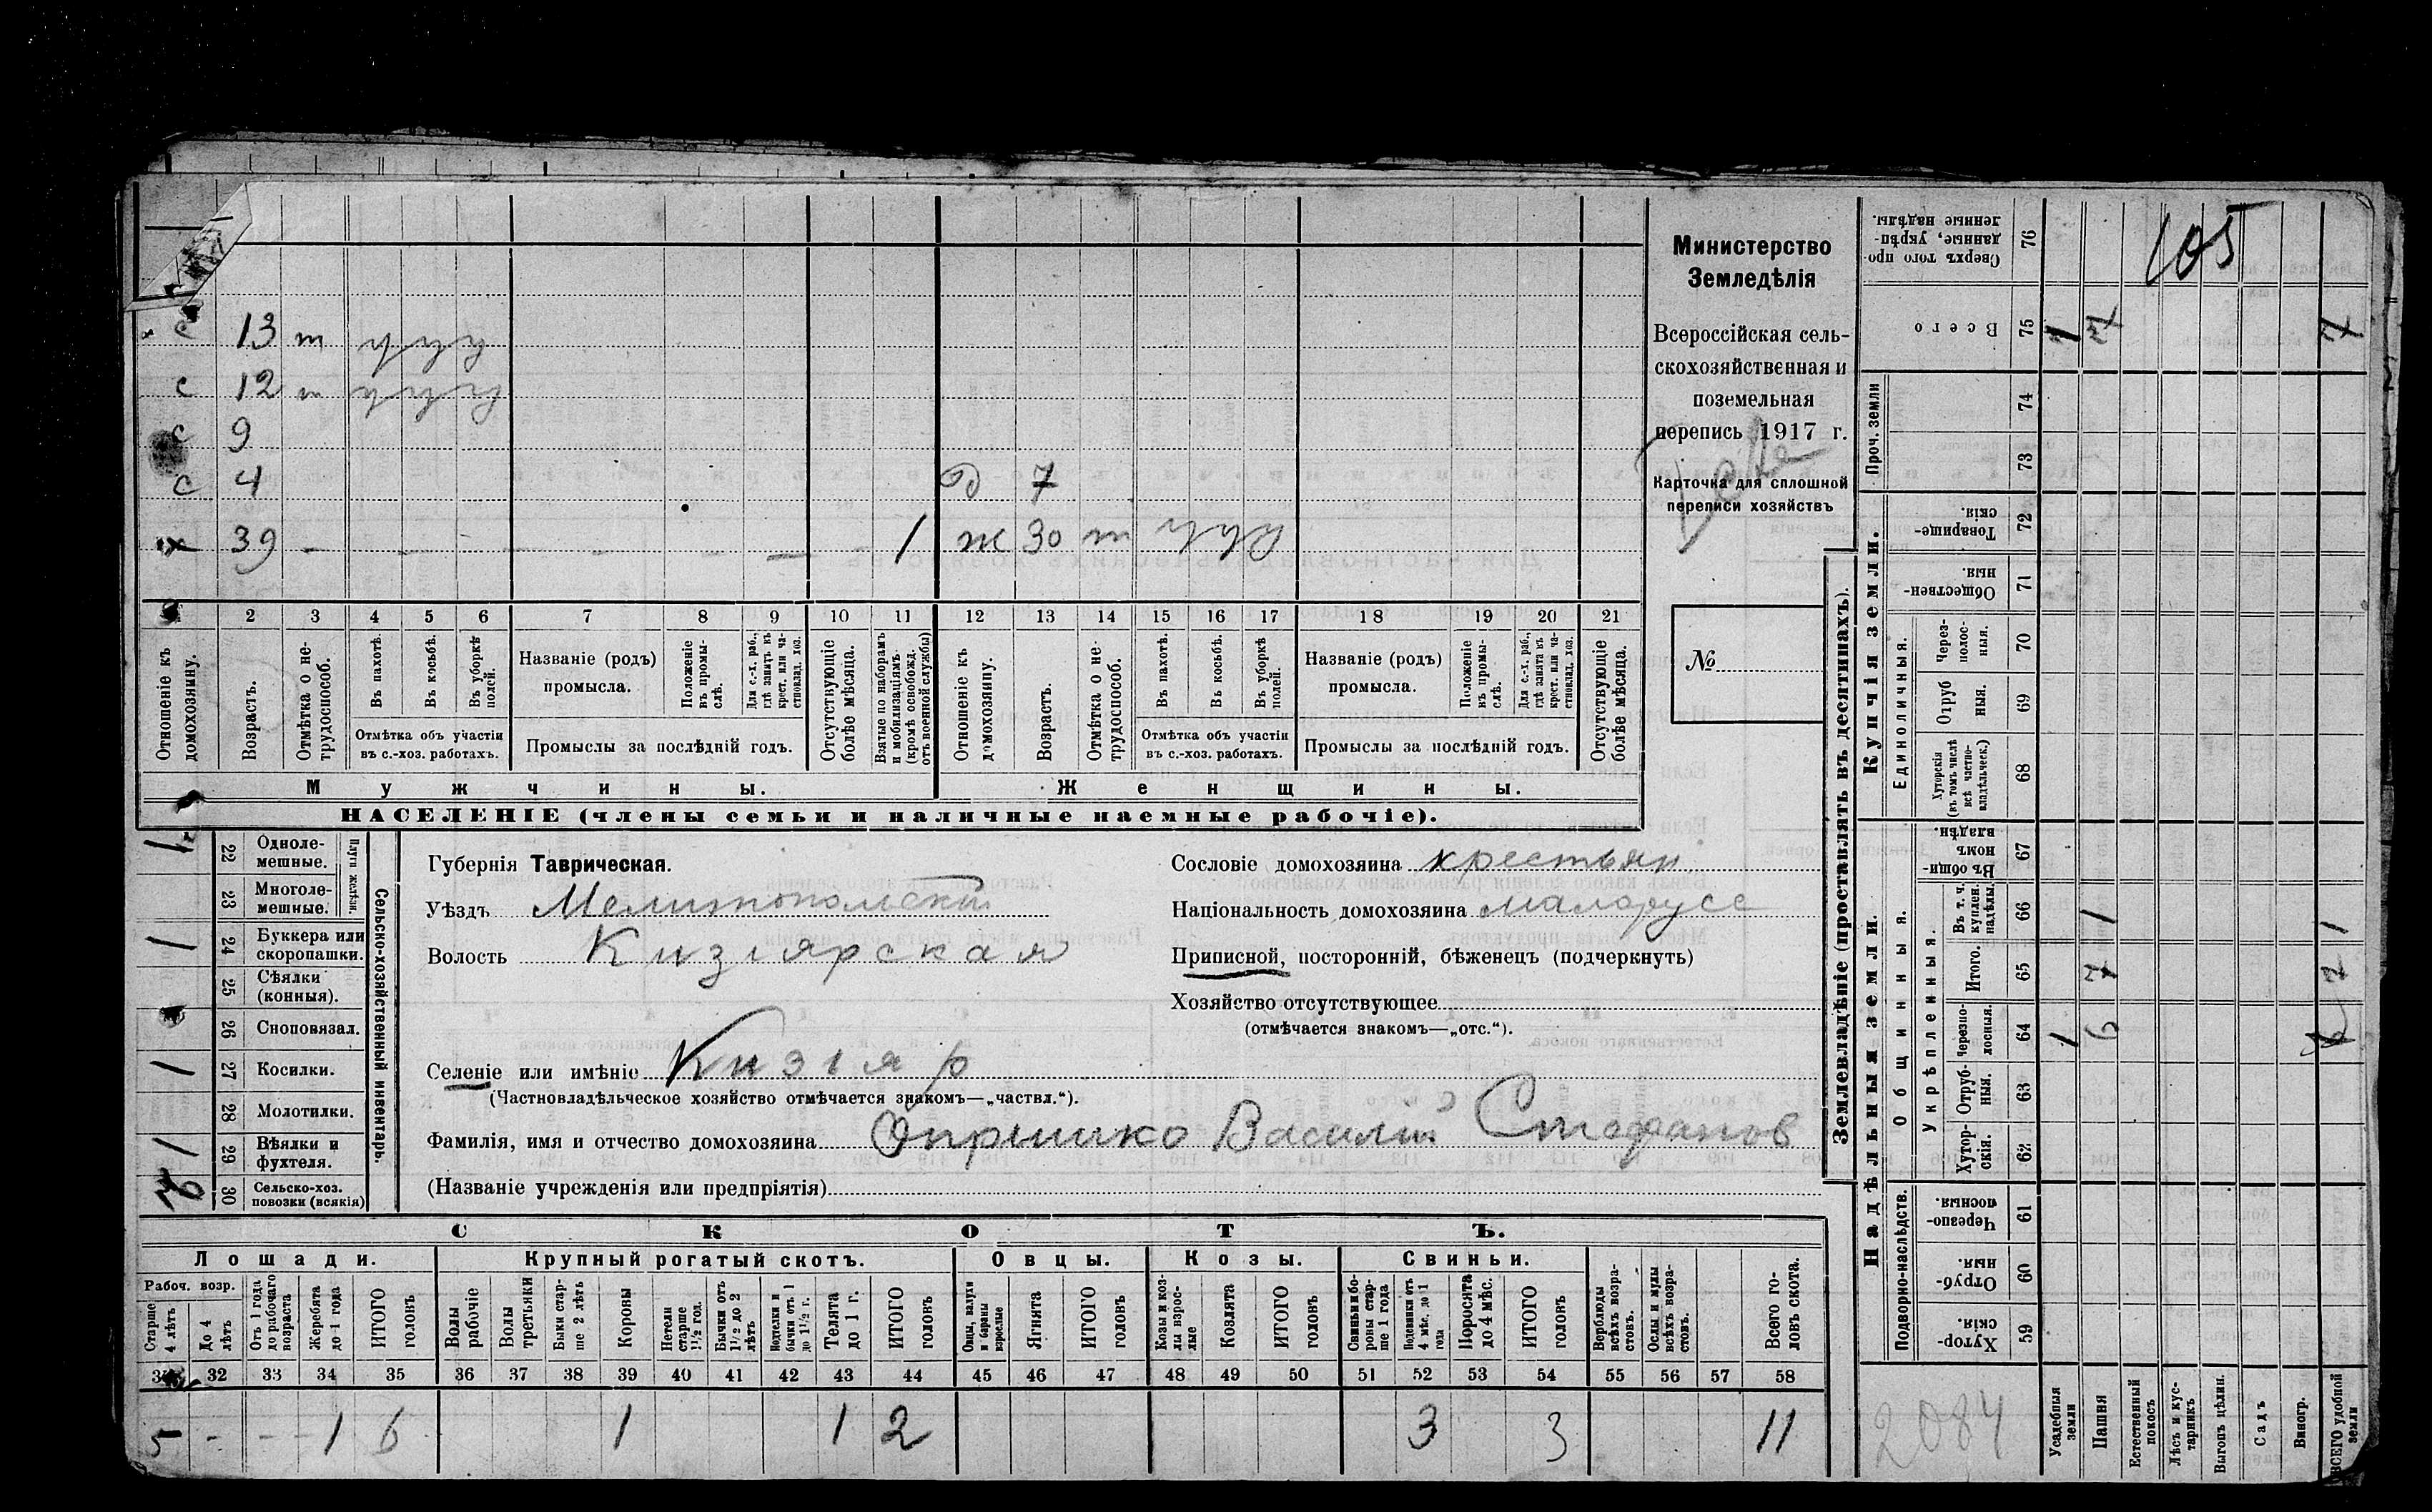 105
с 13 т у у у
с 12 т у у у
с 9
с 4 д 7
х 39 — — — — — — — 1 ж 30 т у у у
1 2 3 4 5 6 7 8 9 10 11 12 13 14 15 16 17 18 19 20 21
Отношеніе къ домохозяину.
Возрастъ.
Отмѣтка о не-
трудоспособ.
Въ пахотѣ.
Въ косьбѣ.
Въ уборкѣ полей.
Отмѣтка объ участіи
въ с.-хоз. работахъ.
Названіе (родъ)
промысла.
Положеніе въ промы-
слѣ.
Для с.-х. раб., гдѣ занятъ въ крест. или ча-
стновлад. хоз.
Промыслы за послѣдній годъ.
Отсутствующіе болѣе мѣсяца.
Взятые по наборамъ и мобилизаціямъ. (кромѣ освобожд. отъ военной службы)
Отношеніе къ домохозяину.
Возрастъ.
Отмѣтка о не-
трудоспособ.
Въ пахотѣ.
Въ косьбѣ.
Въ уборкѣ полей.
Отмѣтка объ участіи
въ с.-хоз. работахъ.
Названіе (родъ)
промысла.
Положеніе въ промы-
слѣ.
Для с.-х. раб., гдѣ занята въ крест. или ча-
стновлад. хоз.
Промыслы за послѣдній годъ.
Отсутствующіе болѣе мѣсяца.
Мужчины. Женщины.
НАСЕЛЕНІЕ (члены семьи и наличные наемные рабочіе).
Министерство
Земледѣлія
Всероссійская сель-
скохозяйственная и
поземельная
перепись 1917 г.
Карточка для сплошной
переписи хозяйствъ
№
Сельско-хозяйственный инвентарь.
Плуги желѣзн.
1 22 Одноле-
мешные.
23 Многоле-
мешные.
1 24 Буккера или
скоропашки.
25 Сѣялки
(конныя).
26 Сноповязал.
1 27 Косилки.
28 Молотилки.
1 29 Вѣялки и
фухтеля.
30 Сельско-хоз.
повозки (всякія)
Губернія Таврическая.
Уѣздъ Мелитопольскій
Волость Кизіярская
Селеніе или имѣніе Кизіяр
(Частновладѣльческое хозяйство отмѣчается знакомъ—„частвл.“).
Фамилія, имя и отчество домохозяина Опришко Василій Стефанов
(Названіе учрежденія или предпріятія)
Сословіе домохозяина крестьян
Національность домохозяина малорусс
Приписной, посторонній, бѣженецъ (подчеркнуть)
Хозяйство отсутствующее
(отмѣчается знакомъ—„отс.“).
СКОТЪ.
Лошади. Крупный рогатый скотъ. Овцы. Козы. Свиньи.
Рабоч. возр.
Старше 4 лѣтъ
До 4 лѣтъ
Отъ 1 года до рабочаго возраста
Жеребята до 1 года
ИТОГО головъ
Волы рабочіе
Волы третьяки
Быки стар-
ше 2 лѣтъ
Коровы
Нетели старше 1½ год.
Бычки отъ 1½ до 2 лѣтъ
Нетели и бычки отъ 1 до 1½ г.
Телята до 1 г.
ИТОГО головъ
Овцы, валухи и бараны взрослые
Ягнята
ИТОГО головъ
Козы и коз-
лы взрос-
лые
Козлята
ИТОГО головъ
Свиньи и бо-
ровы стар-
ше 1 года
Подсвинки отъ 4 мѣс. до 1 года
Поросята до 4 мѣс.
ИТОГО головъ
Верблюды всѣхъ возра-
стовъ.
Ослы и мулы всѣхъ возра-
стовъ.
Всего го-
ловъ скота.
32 33 34 35 36 37 38 39 40 41 42 43 44 45 46 47 48 49 50 51 52 53 54 55 56 57 58
5 - - - 1 6 1 1 2 3 3 11
Землевладѣніе (проставлять въ десятинахъ).
Купчія земли.
Надѣльныя земли.
Сверхъ того про-
данные, укрѣп-
ленные надѣлы. 76
Всего 75 1 7 7
Проч. земли 74
73
Товарище-
скія. 72
Обществен-
ныя. 71
Единоличныя.
Через-
полос-
ныя. 70
Отруб
ныя. 69
Хуторскія
(въ томъ числѣ
всѣ частно-
владѣльческ.) 68
Общинныя.
Въ общи-
номъ
владѣн. 67
Укрѣпленныя.
Въ т. ч.
куплен.
надѣлы. 66 1 1
Итого. 65 7 7
Черезпо-
лосныя. 64 1 6
Отруб-
ныя. 63
Хутор-
скія. 62
Подворно-наслѣдств.
Черезпо-
лосныя. 61
Отруб-
ныя. 60
Хутор-
скія. 59
Усадебныя земли
Пашня
Естественный покосъ
Лѣсъ и кус-
тарникъ
Выгонъ цѣлин.
Садъ
Виногр.
ВСЕГО удобной земли
2084